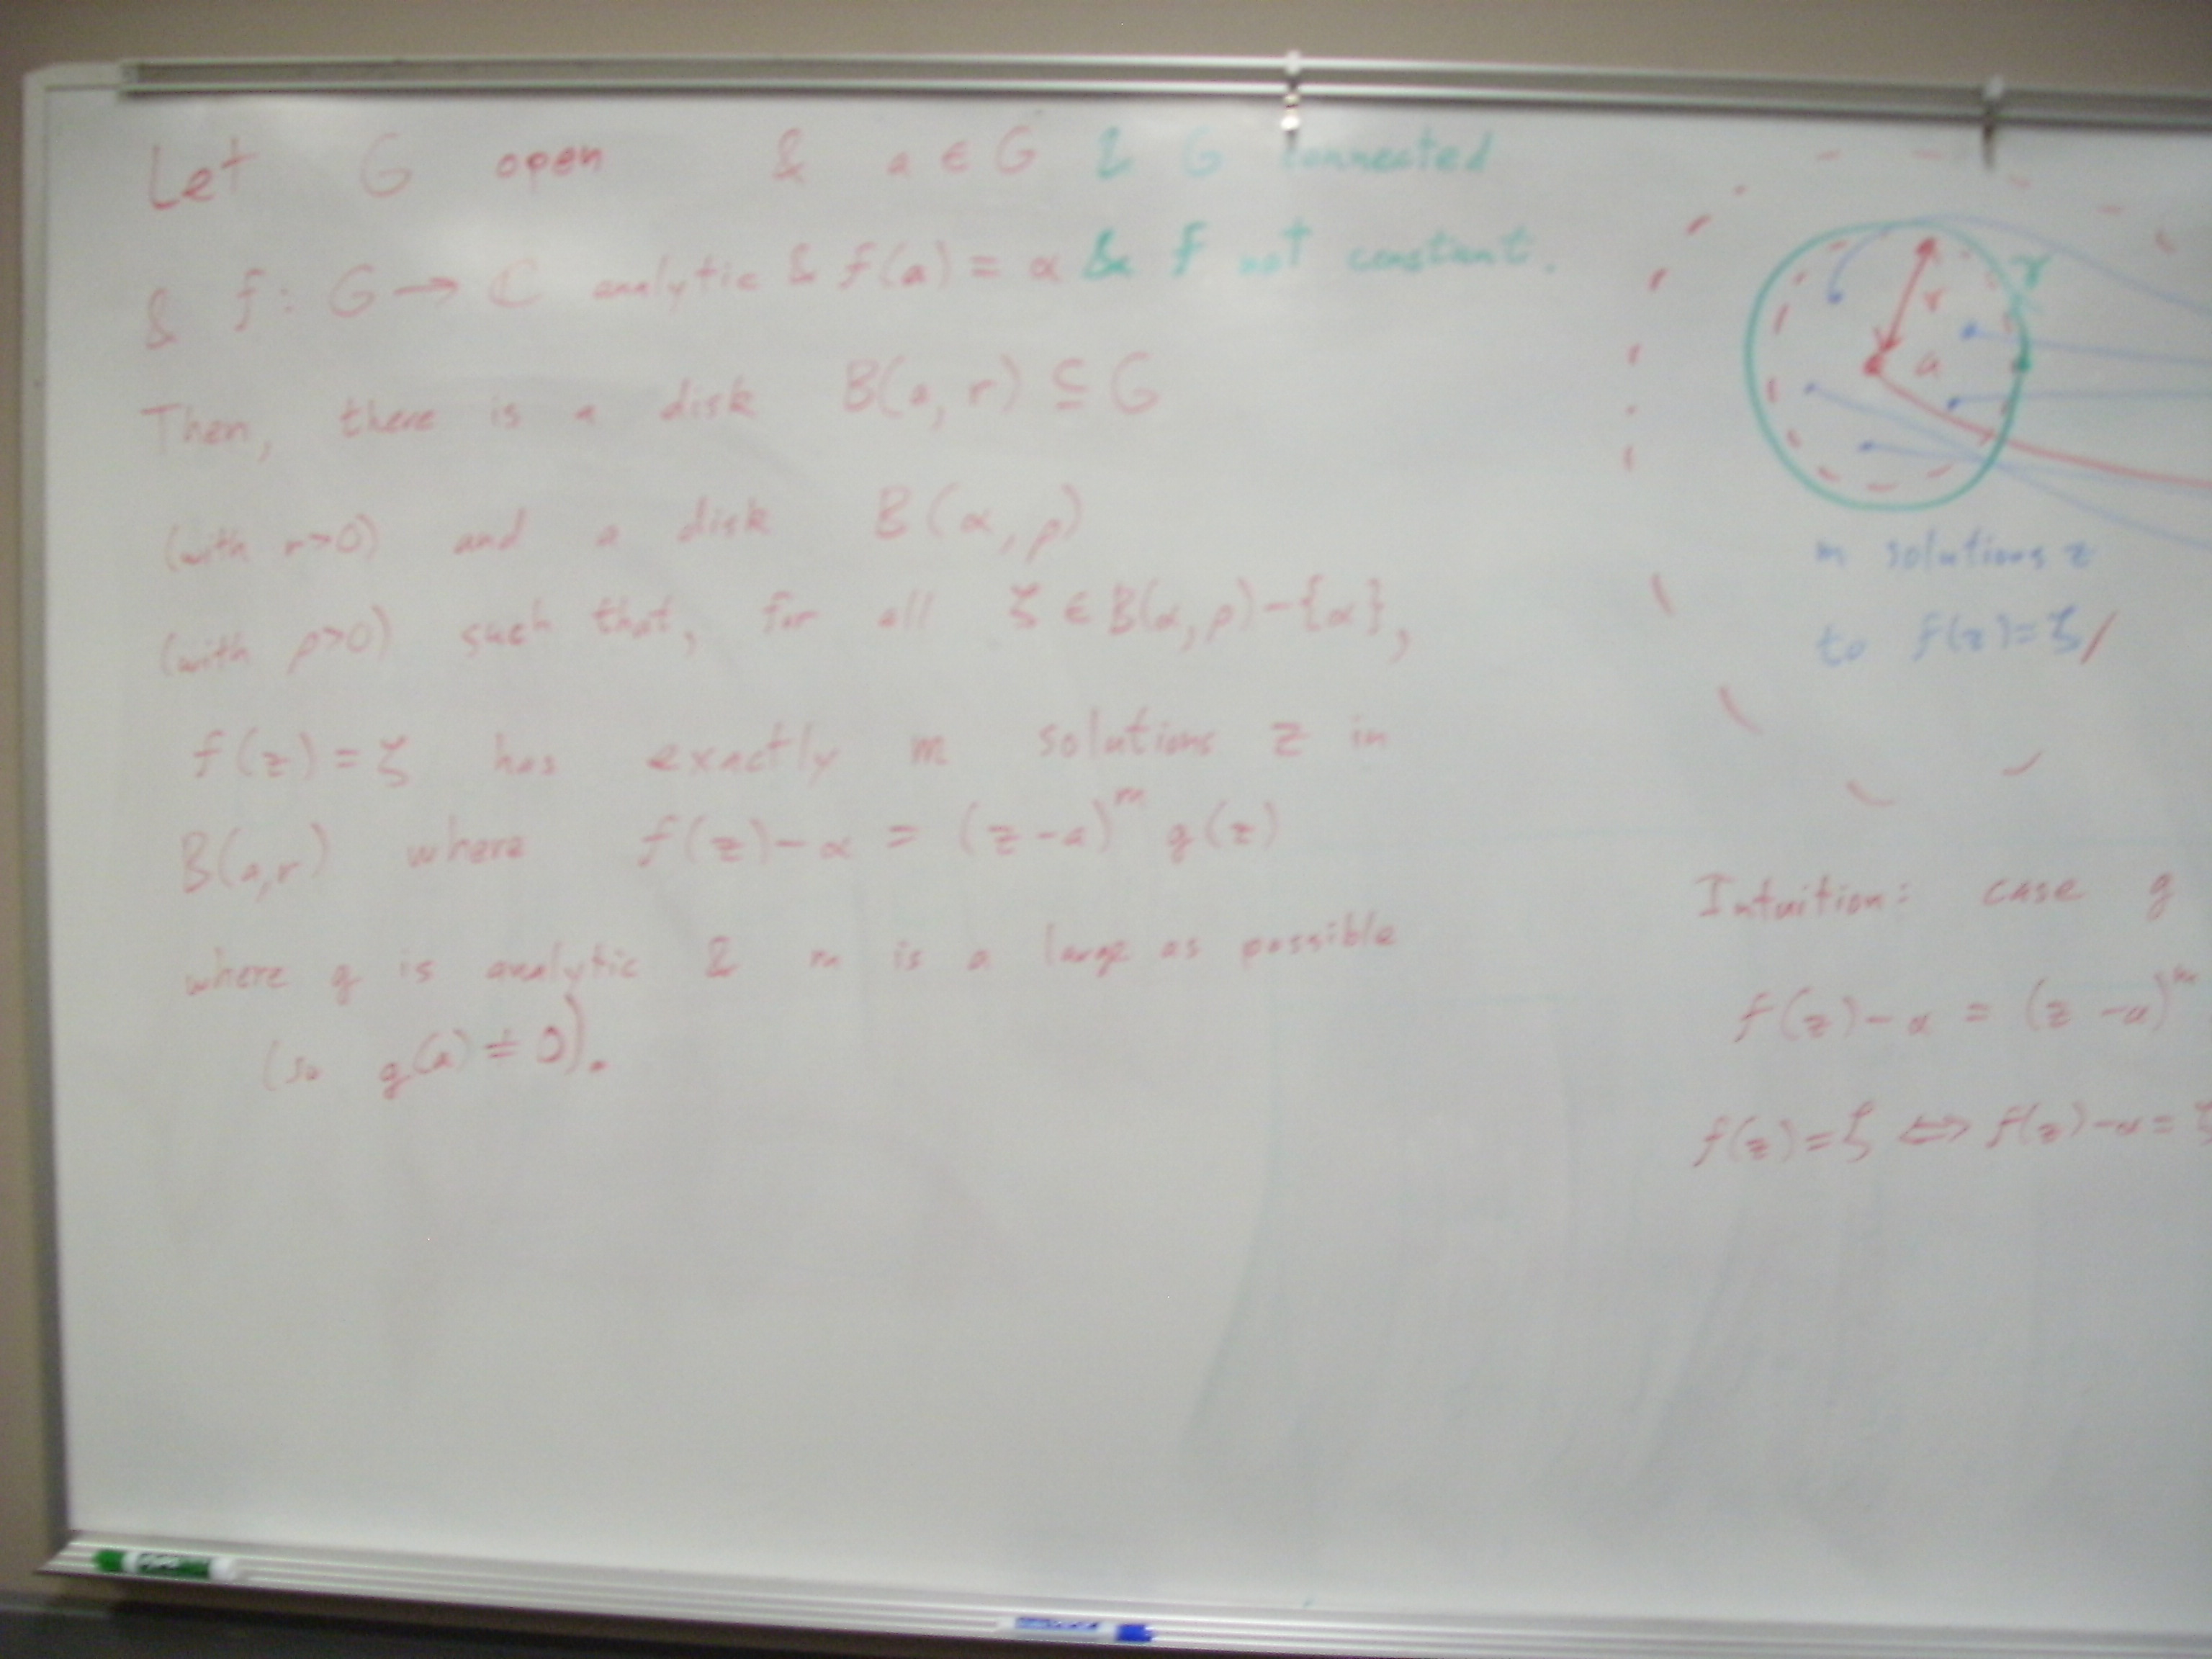 Let G open & a ∈ G & G connected
& f: G → ℂ analytic & f(a) = α & f not constant.
Then, there is a disk B(a, r) ⊆ G
(with r>0) and a disk B(α, ρ)
(with ρ>0) such that, for all ζ ∈ B(α, ρ) - {α},
f(z) = ζ has exactly m solutions z in
B(a,r) where f(z) - α = (z - a)^m g(z)
where g is analytic & m is a large as possible
(so g(a) ≠ 0).
γ
r
a
m solutions z
to f(z) = ζ
Intuition: case g
f(z) - α = (z - a)^m
f(z) = ζ ⇔ f(z) - α = ζ